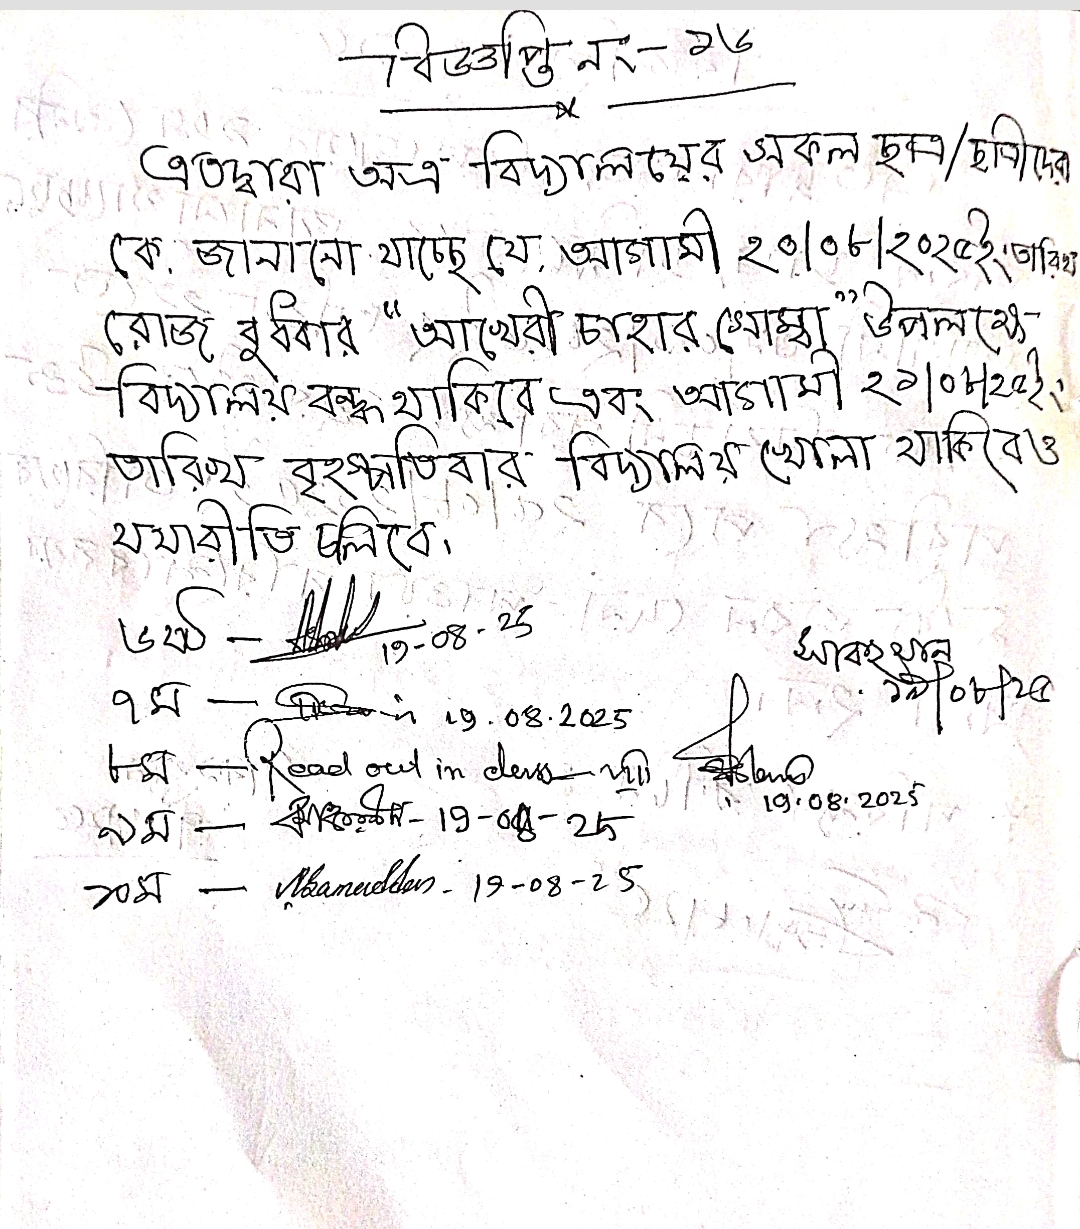 বিজ্ঞপ্তি নং- ১৬
এতদ্বারা অত্র বিদ্যালয়ের সকল ছাত্র/ছাত্রীদের
কে জানানো যাচ্ছে যে, আগামী ২০/০৮/২০২৫ইং তারিখ
রোজ বুধবার "আখেরী চাহার সোম্বা" উপলক্ষে
বিদ্যালয় বন্ধ থাকিবে এবং আগামী ২১/০৮/২৫ইং
তারিখ বৃহস্পতিবার বিদ্যালয় খোলা থাকিবে ও
যথারীতি চলিবে।
৬ষ্ঠ - 19-08-25
৭ম - 19.08.2025
৮ম - Read out in class
৯ম - 19-08-25
১০ম - 19-08-25
১৯/০৮/২৫
19.08.2025